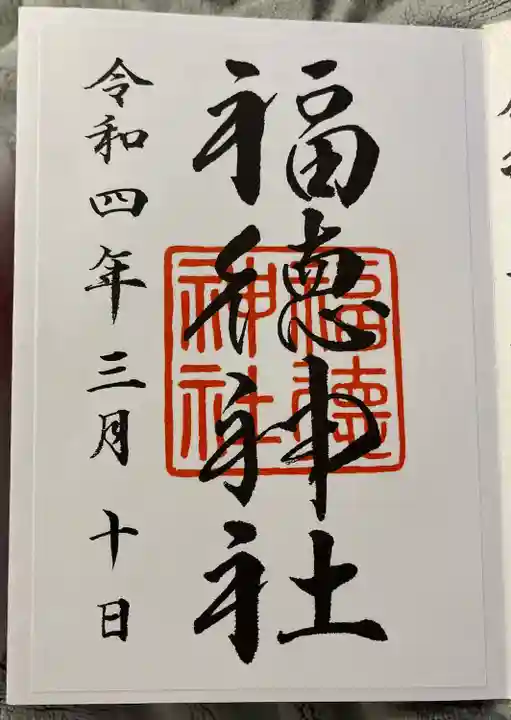 福徳神社
福徳神社
令和四年三月十日